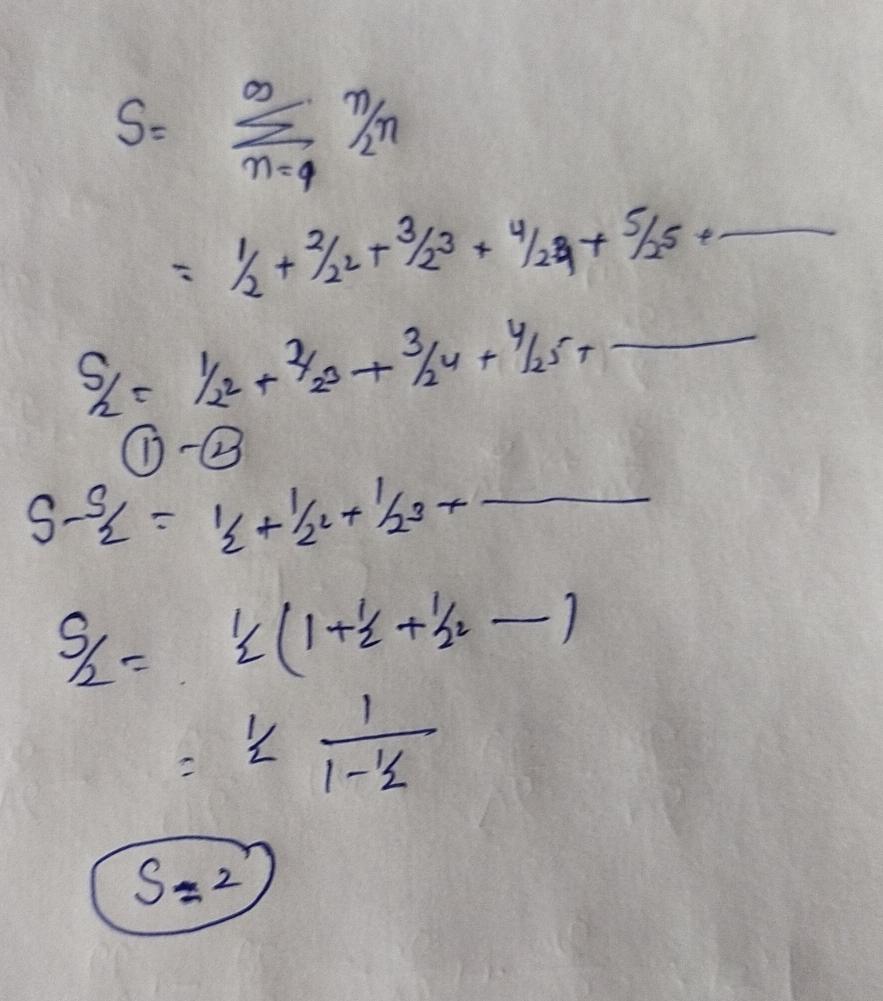 S = ∞ Σ n=1 n/2^n
= 1/2 + 2/2^2 + 3/2^3 + 4/2^4 + 5/2^5 + ———
S/2 = 1/2^2 + 2/2^3 + 3/2^4 + 4/2^5 + ———
① - ②
S - S/2 = 1/2 + 1/2^2 + 1/2^3 + ———
S/2 = 1/2 (1 + 1/2 + 1/2^2 — )
= 1/2 1/(1 - 1/2)
S = 2